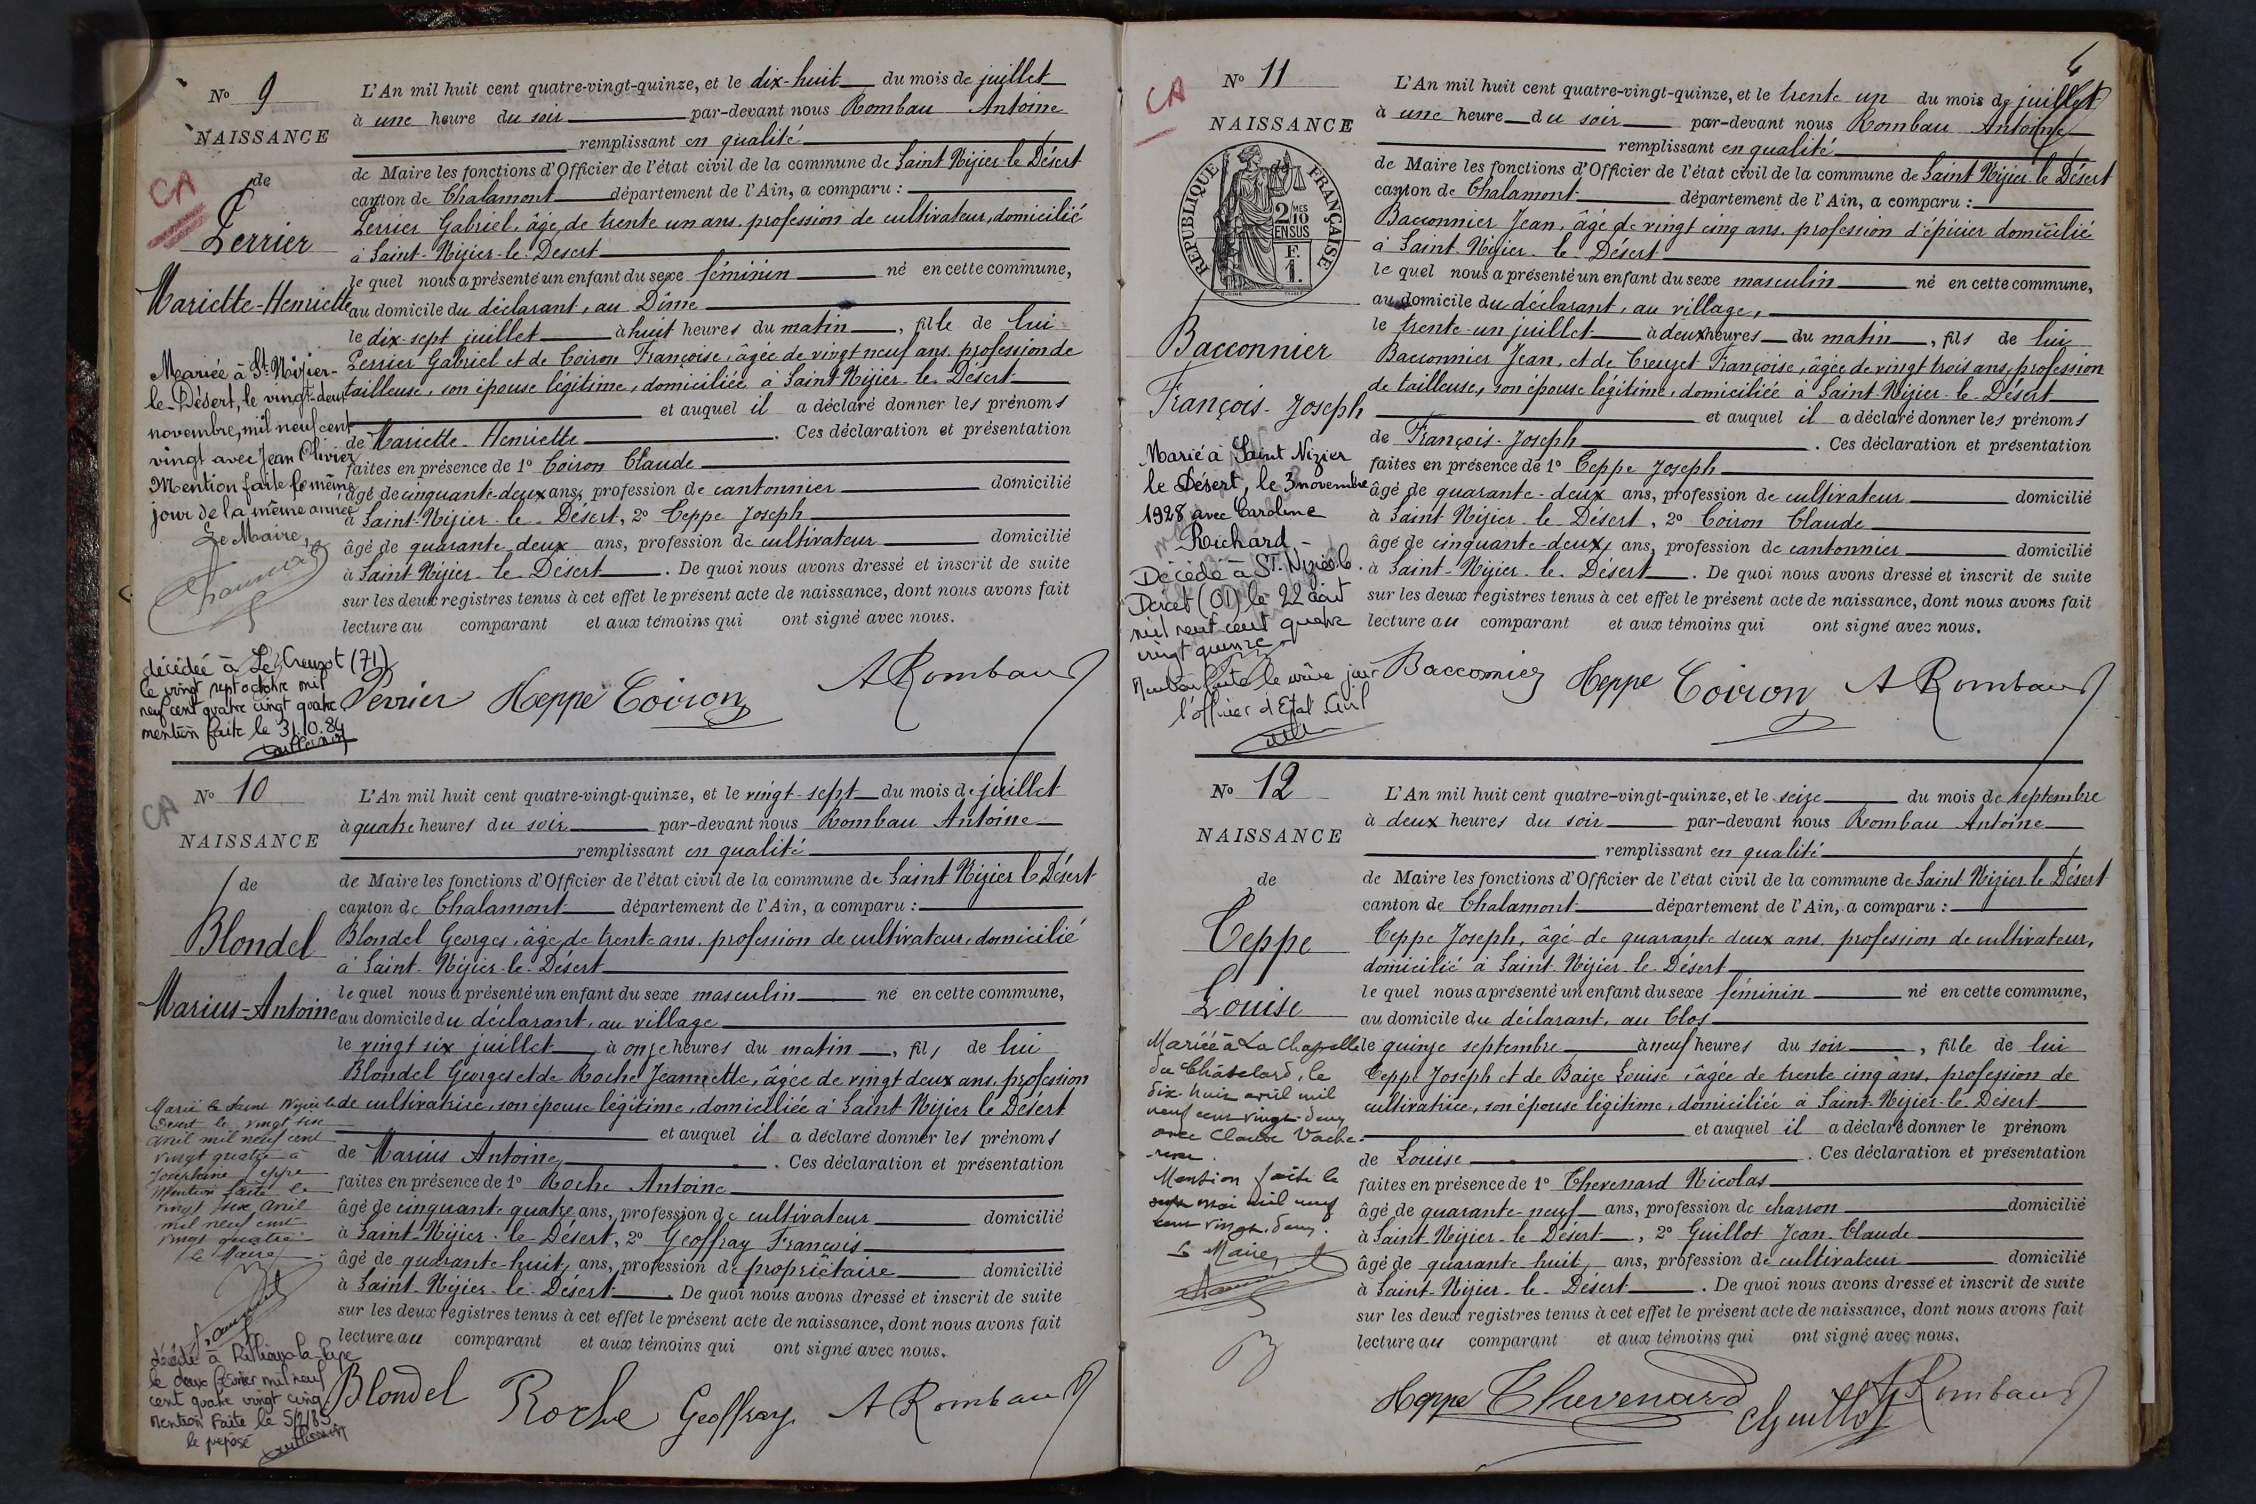 No 9
NAISSANCE
de
CA
Perrier
Mariette-Henriette
Mariée à St Nizier-
le-Désert, le vingt-deux
novembre, mil neuf cent
vingt avec Jean Olivier
Mention faite le même
jour de la même année
Le Maire,
décédée à Le Creusot (71)
le vingt sept octobre mil
neuf cent quatre vingt quatre
mention faite le 31.10.84
L'An mil huit cent quatre-vingt-quinze, et le dix-huit du mois de juillet
à une heure du soir par-devant nous Rombau Antoine
remplissant en qualité
de Maire les fonctions d'Officier de l'état civil de la commune de Saint Nizier-le Désert
canton de Chalamont département de l'Ain, a comparu :
Perrier Gabriel, âgé de trente un ans, profession de cultivateur, domicilié
à Saint-Nizier-le-Désert
le quel nous a présenté un enfant du sexe féminin né en cette commune,
au domicile du déclarant, au Dîme
le dix-sept juillet à huit heures du matin, fille de lui
Perrier Gabriel et de Coiron Françoise, âgée de vingt neuf ans, profession de
tailleuse, son épouse légitime, domiciliée à Saint Nizier-le-Désert
et auquel il a déclaré donner les prénoms
de Mariette-Henriette. Ces déclaration et présentation
faites en présence de 1o Coiron Claude
âgé de cinquante-deux ans, profession de cantonnier domicilié
à Saint-Nizier-le-Désert, 2o Teppe Joseph
âgé de quarante-deux ans, profession de cultivateur domicilié
à Saint Nizier-le-Désert. De quoi nous avons dressé et inscrit de suite
sur les deux registres tenus à cet effet le présent acte de naissance, dont nous avons fait
lecture au comparant et aux témoins qui ont signé avec nous.
Perrier Teppe Coiron A Rombau
No 10
CA
NAISSANCE
de
Blondel
Marius-Antoine
Marié à Saint Nizier le
Désert le vingt six
avril mil neuf cent
vingt quatre à
Joséphine Teppe
Mention faite le
vingt six avril
mil neuf cent
vingt quatre
le Maire
décédé à Rillieux-la-Pape
le deux février mil neuf
cent quatre vingt cinq
mention faite le 5/2/85
le préposé
L'An mil huit cent quatre-vingt-quinze, et le vingt-sept du mois de juillet
à quatre heures du soir par-devant nous Rombau Antoine
remplissant en qualité
de Maire les fonctions d'Officier de l'état civil de la commune de Saint Nizier le Désert
canton de Chalamont département de l'Ain, a comparu :
Blondel Georges, âgé de trente ans, profession de cultivateur, domicilié
à Saint-Nizier-le-Désert
le quel nous a présenté un enfant du sexe masculin né en cette commune,
au domicile du déclarant, au village
le vingt six juillet à onze heures du matin, fils de lui
Blondel Georges et de Roche Jeannette, âgée de vingt deux ans, profession
de cultivatrice, son épouse légitime, domiciliée à Saint Nizier le Désert
et auquel il a déclaré donner les prénoms
de Marius Antoine. Ces déclaration et présentation
faites en présence de 1o Roche Antoine
âgé de cinquante quatre ans, profession de cultivateur domicilié
à Saint-Nizier-le-Désert, 2o Geoffray François
âgé de quarante-huit ans, profession de propriétaire domicilié
à Saint-Nizier-le-Désert. De quoi nous avons dressé et inscrit de suite
sur les deux registres tenus à cet effet le présent acte de naissance, dont nous avons fait
lecture au comparant et aux témoins qui ont signé avec nous.
Blondel Roche Geoffray A Rombau
6
CA
No 11
NAISSANCE
de
RÉPUBLIQUE FRANÇAISE
2/10MES
EN SUS
F.
1.
Bacconnier
François-Joseph
Marié à Saint Nizier
le Désert, le 3 novembre
1928 avec Caroline
Richard
Décédé à St. Nizier le
Désert (01) le 22 août
mil neuf cent quatre
vingt quinze
Mention faite le même jour
l'officier d'Etat Civil
L'An mil huit cent quatre-vingt-quinze, et le trente un du mois de juillet
à une heure du soir par-devant nous Rombau Antoine
remplissant en qualité
de Maire les fonctions d'Officier de l'état civil de la commune de Saint Nizier-le Désert
canton de Chalamont département de l'Ain, a comparu :
Bacconnier Jean, âgé de vingt cinq ans, profession d'épicier domicilié
à Saint-Nizier-le-Désert
le quel nous a présenté un enfant du sexe masculin né en cette commune,
au domicile du déclarant, au village,
le trente-un juillet à deux heures du matin, fils de lui
Bacconnier Jean, et de Creuzet Françoise, âgée de vingt trois ans, profession
de tailleuse, son épouse légitime, domiciliée à Saint-Nizier-le-Désert
et auquel il a déclaré donner les prénoms
de François-Joseph. Ces déclaration et présentation
faites en présence de 1o Teppe Joseph
âgé de quarante-deux ans, profession de cultivateur domicilié
à Saint Nizier-le Désert, 2o Coiron Claude
âgé de cinquante-deux ans, profession de cantonnier domicilié
à Saint-Nizier-le-Désert. De quoi nous avons dressé et inscrit de suite
sur les deux registres tenus à cet effet le présent acte de naissance, dont nous avons fait
lecture au comparant et aux témoins qui ont signé avec nous.
Bacconnier Teppe Coiron A Rombau
No 12
NAISSANCE
de
Teppe
Louise
Mariée à La Chapelle
du Châtelard, le
dix-huit avril mil
neuf cent vingt-deux
avec Claude Vache-
resse.
Mention faite le
mai mil neuf
cent vingt-deux.
Le Maire,
L'An mil huit cent quatre-vingt-quinze, et le seize du mois de septembre
à deux heures du soir par-devant nous Rombau Antoine
remplissant en qualité
de Maire les fonctions d'Officier de l'état civil de la commune de Saint Nizier-le Désert
canton de Chalamont département de l'Ain, a comparu :
Teppe Joseph, âgé de quarante deux ans, profession de cultivateur,
domicilié à Saint-Nizier-le-Désert
le quel nous a présenté un enfant du sexe féminin né en cette commune,
au domicile du déclarant, au Clos
le quinze septembre à neuf heures du soir, fille de lui
Teppe Joseph et de Baize Louise, âgée de trente cinq ans, profession de
cultivatrice, son épouse légitime, domiciliée à Saint-Nizier-le-Désert
et auquel il a déclaré donner le prénom
de Louise. Ces déclaration et présentation
faites en présence de 1o Thevenard Nicolas
âgé de quarante-neuf ans, profession de charron domicilié
à Saint Nizier-le Désert, 2o Guillot Jean-Claude
âgé de quarante huit ans, profession de cultivateur domicilié
à Saint-Nizier-le-Désert. De quoi nous avons dressé et inscrit de suite
sur les deux registres tenus à cet effet le présent acte de naissance, dont nous avons fait
lecture au comparant et aux témoins qui ont signé avec nous.
Teppe Thevenard Guillot A Rombau